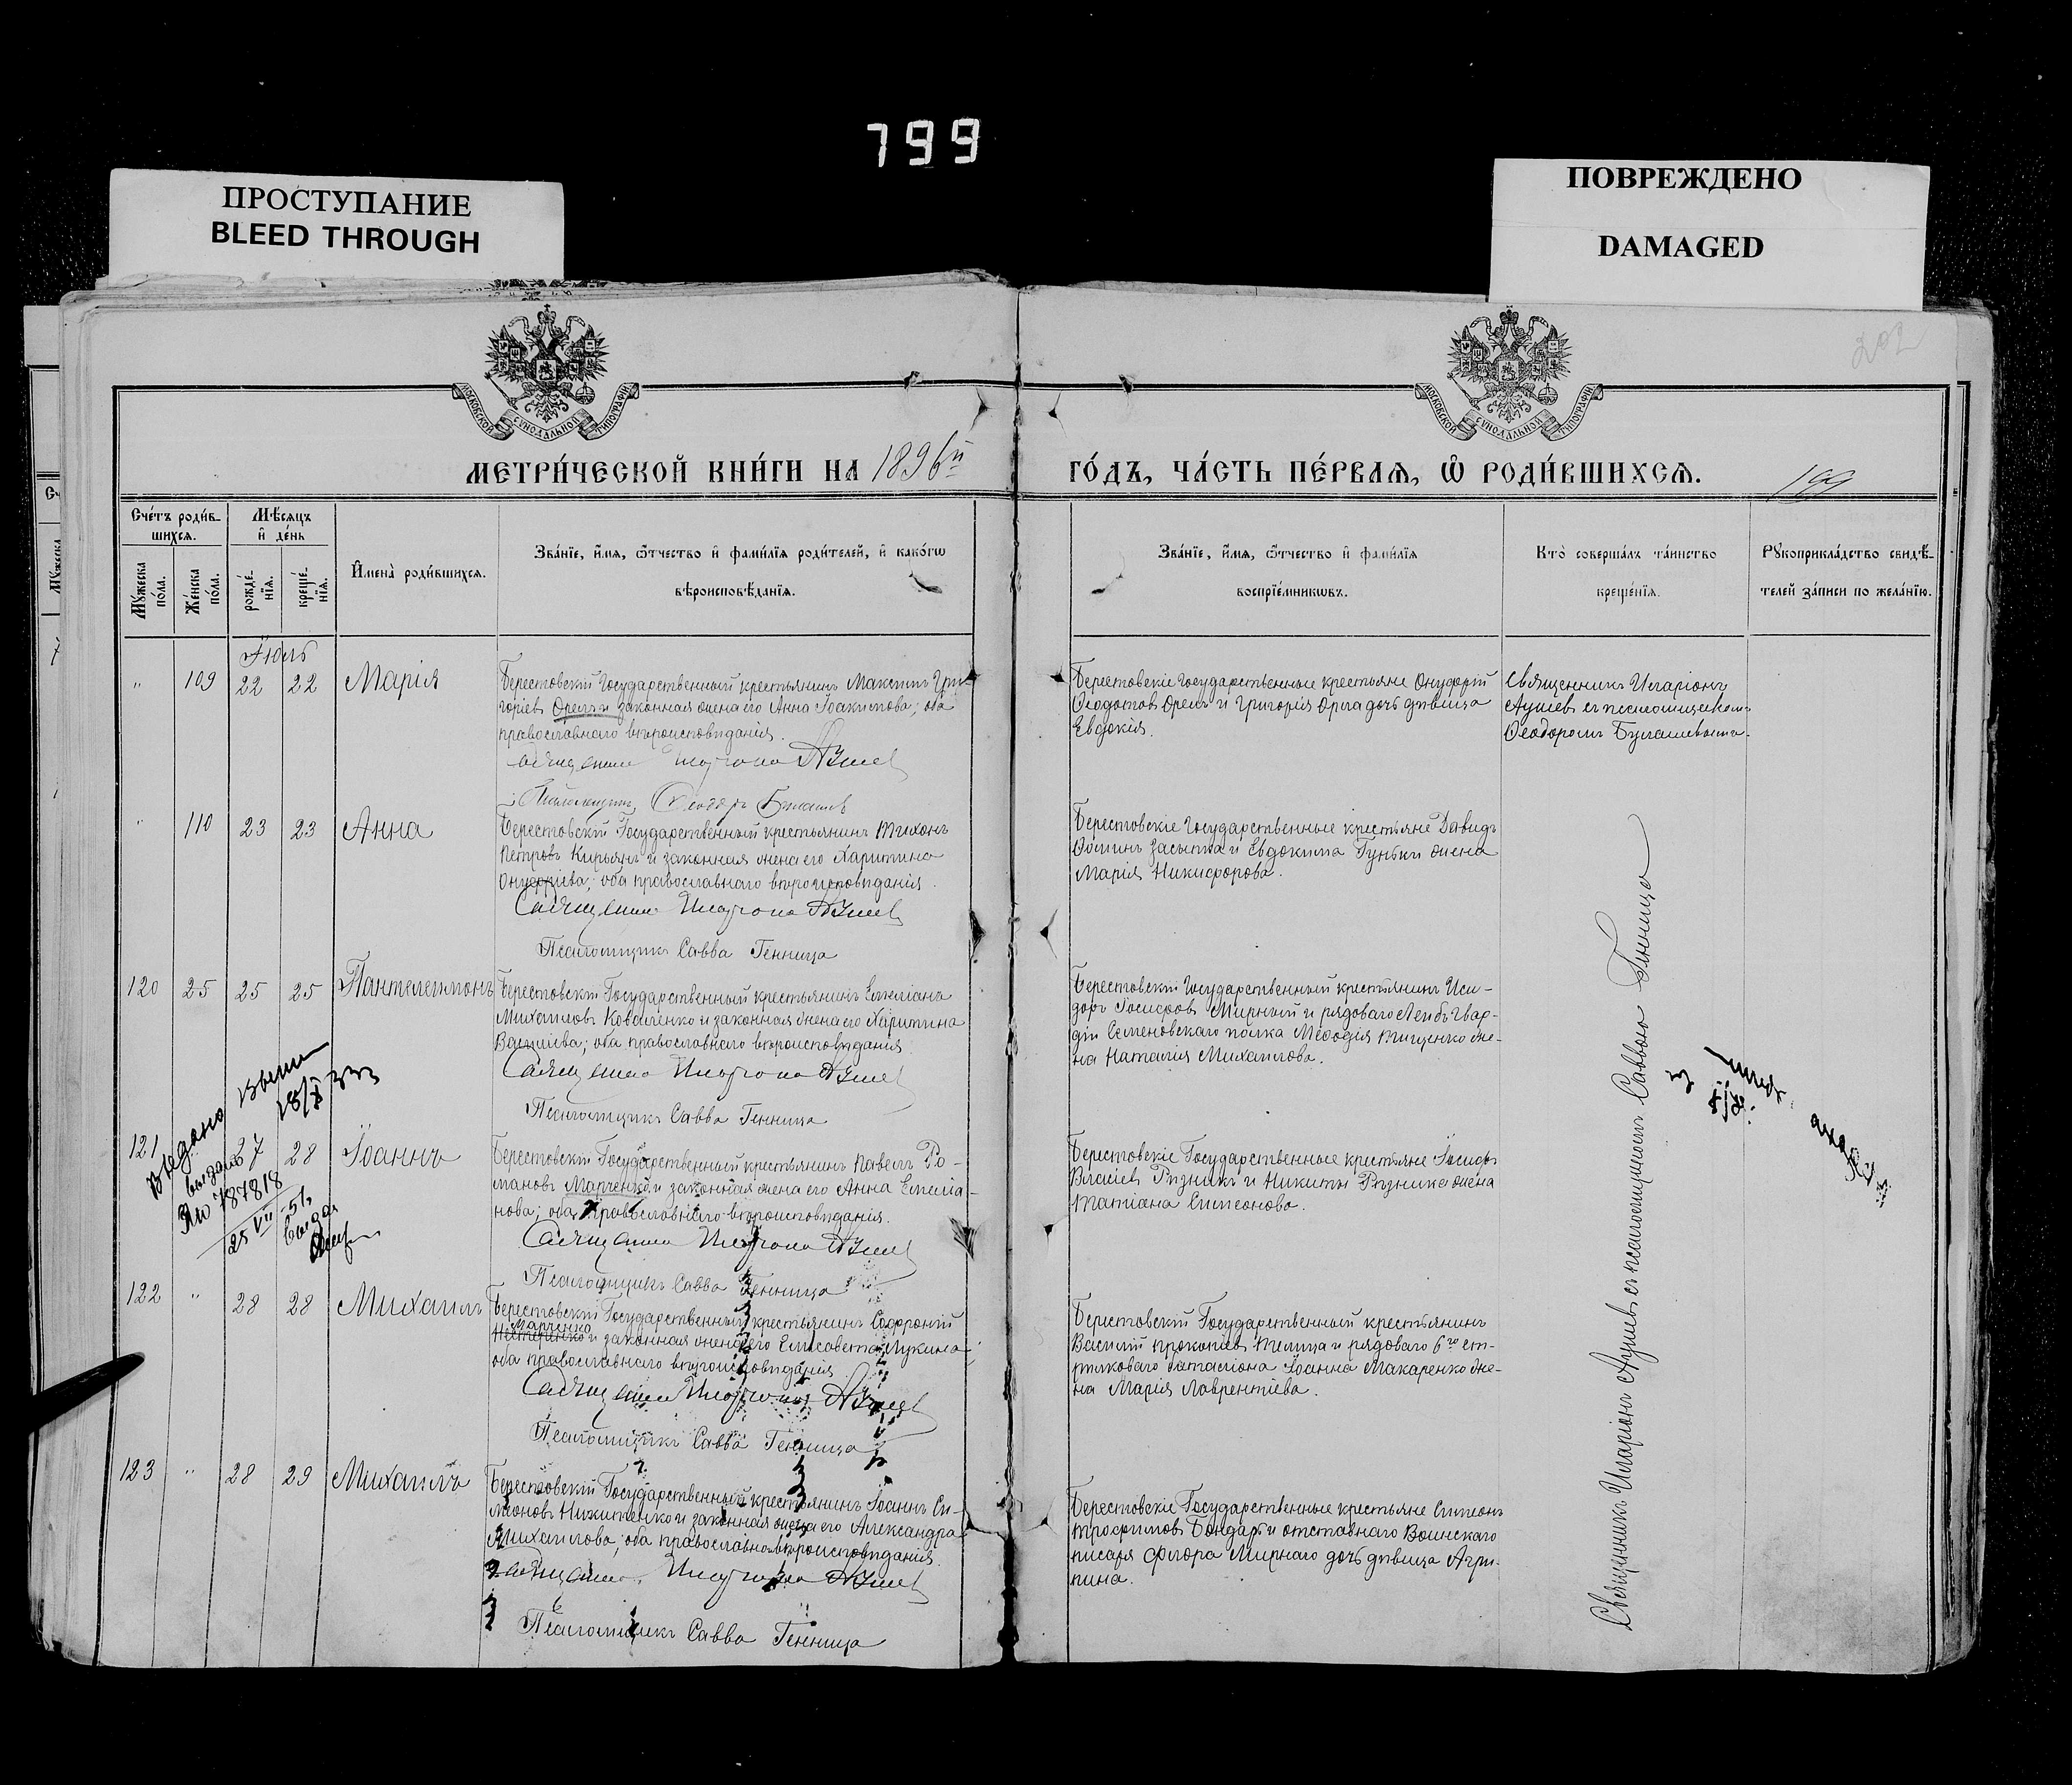 799
ПРОСТУПАНИЕ
BLEED THROUGH
ПОВРЕЖДЕНО
DAMAGED
202
МОСКОВСКОЙ СѴНОДАЛЬНОЙ ТИПОГРАФІИ
МОСКОВСКОЙ СѴНОДАЛЬНОЙ ТИПОГРАФІИ
МЕТРИ́ЧЕСКОЙ КНИ́ГИ НА 1896й
ГО́ДЪ, ЧА́СТЬ ПЕ́РВАѦ, Ѡ РОДИ́ВШИХСѦ.
199
Сче́тъ роди́в-
шихсѧ.
Мѣ́сѧцъ
и҆ де́нь
Мꙋ́жеска
по́ла.
Же́нска
по́ла.
рожде́-
нїѧ.
креще́-
нїѧ.
И҆мена̀ роди́вшихсѧ.
Зва́нїе, и҆́мѧ, ѻ҆́тчество и҆ фами́лїѧ роди́телей, и҆ како́гѡ
вѣроисповѣ́данїѧ.
Зва́нїе, и҆́мѧ, ѻ҆́тчество и҆ фами́лїѧ
воспрїе́мникѡвъ.
Кто̀ соверша́лъ та́инство
креще́нїѧ.
Рꙋкоприкла́дство свидѣ́-
телей за́писи по жела́нїю.
Іюль
" 109 22 22 Марія
Берестовскій Государственный крестьянинъ Максимъ Гри-
горіевъ Орелъ и законная жена его Анна Іоакимова; оба
православнаго вѣроисповѣданія.
Священникъ Иларіонъ Ауліевъ
Псаломщикъ Ѳеодоръ
Берестовскіе Государственные крестьяне Онуфрій
Ѳеодотовъ Орелъ и Григорія Орла дочь дѣвица
Евдокія.
Священникъ Иларіонъ
Ауліевъ съ псаломщикомъ
Ѳеодоромъ
" 110 23 23 Анна
Берестовскій Государственный крестьянинъ Тихонъ
Петровъ Кирьянъ и законная жена его Харитина
Онуфріева; оба православнаго вѣроисповѣданія.
Священникъ Иларіонъ Ауліевъ
Псаломщикъ Савва Генница
Берестовскіе Государственные крестьяне Давидъ
Ѳоминъ Засыпка и Евдокима Гуньки жена
Марія Никифорова.
120 25 25 25 Пантелеимонъ
Берестовскій Государственный крестьянинъ Емеліанъ
Михаиловъ Коваленко и законная жена его Харитина
Васіліева; оба православнаго вѣроисповѣданія.
Священникъ Иларіонъ Ауліевъ
Псаломщикъ Савва Генница
Берестовскій Государственный крестьянинъ Иси-
доръ Іосифовъ Мирный и рядоваго Лейбъ Гвар-
діи Семеновскаго полка Меѳодія Тищенко же-
на Наталія Михаилова.
121 27 28 Іоаннъ
Выдано
18/X 333
выдано
787818
25 VII-51
Берестовскій Государственный крестьянинъ Павелъ Ро-
мановъ Марченко и законная жена его Анна Емелiа-
нова; оба православнаго вѣроисповѣданія.
Священникъ Иларіонъ Ауліевъ
Псаломщикъ Савва Генница
Берестовскіе Государственные крестьяне Іосифъ
Власіевъ Рѣзникъ и Никиты Рѣзника жена
Татіана Симеонова.
122 " 28 28 Михаилъ
Берестовскій Государственный крестьянинъ Софроній
Марченко
Нестеренко и законная жена его Елисавета Лукина;
оба православнаго вѣроисповѣданія
Священникъ Иларіонъ Ауліевъ
Псаломщикъ Савва Генница
Берестовскій Государственный крестьянинъ
Василій Прокопіевъ и рядоваго 6го ст-
рѣлковаго баталіона Іоанна Макаренко же-
на Марія Лаврентіева.
123 " 28 29 Михаилъ
Берестовскій Государственный крестьянинъ Іоаннъ Си-
меоновъ Никитенко и законная жена его Александра
Михаилова; оба православнаго вѣроисповѣданія.
Священникъ Иларіонъ Ауліевъ
Псаломщикъ Савва Генница
Берестовскіе Государственные крестьяне Симеонъ
Трофимовъ Бондарь и отставнаго Воинскаго
писаря Флора Мирнаго дочь дѣвица Агри-
пина.
Священникъ Иларіонъ Ауліевъ съ псаломщикомъ Саввою Генница